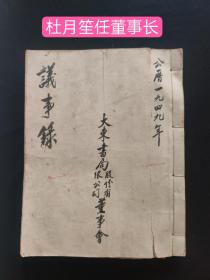 杜月笙任董事长
公曆一九四九年
大東書局股份有限公司董事會
議事錄